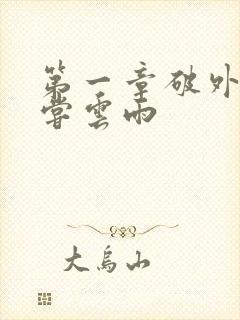 第一章破外
嘗雲雨
大鳥山